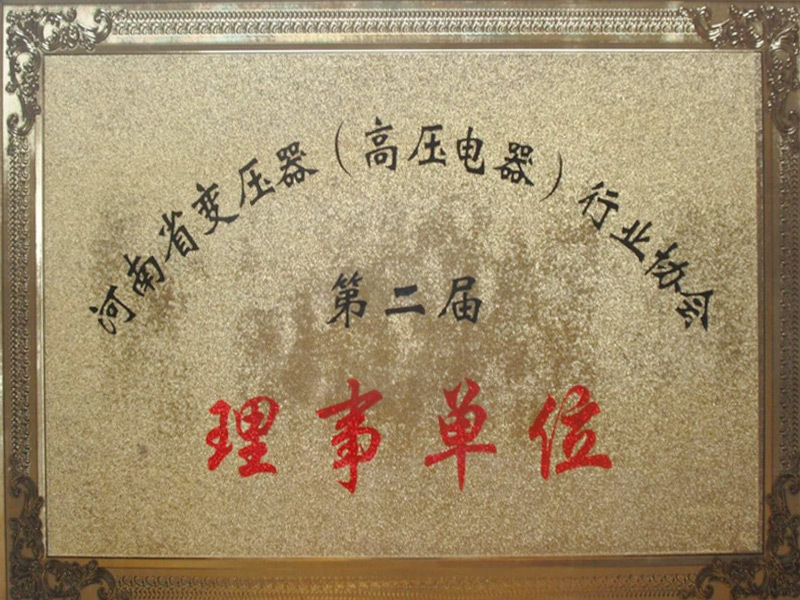 河南省变压器（高压电器）行业协会
第二届
理事单位